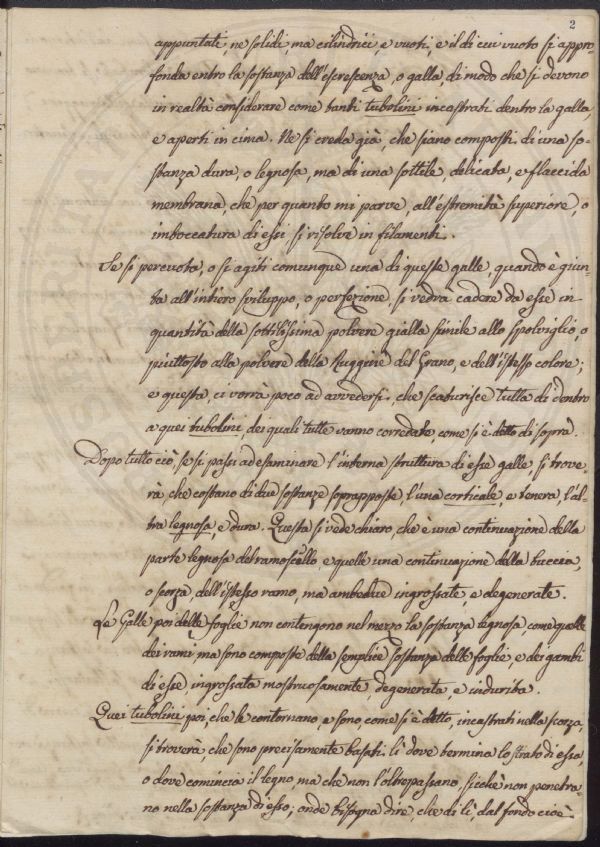 2
appuntati, ne solidi, ma cilindrici, e vuoti, e il di cui vuoto si appro-
fonda entro la sostanza dell'escrescenza, o galla, di modo che si devono
in realtà considerare come tanti tubolini incastrati dentro la galla,
e aperti in cima. Ne si creda già, che siano composti di una so-
stanza dura, o legnosa, ma di una sottile, delicata, e flaccida
membrana, che per quanto mi parve, all'estremità superiore, o
imboccatura di essi si risolve in filamenti.
Se si percuota, o si agiti comunque una di queste galle, quando è giun-
ta all'intiero sviluppo, o perfezione, si vedrà cadere da esse in
quantità della sottilissima polvere gialla simile allo spolviglio, o
piuttosto alla polvere della Ruggine del Grano, e dell'istesso colore;
e questa, ci vorrà poco ad avvedersi, che scaturisce tutta di dentro
a quei tubolini, dei quali tutte vanno corredate come si è detto di sopra.
Dopo tutto ciò, se si passi ad esaminare l'interna struttura di esse galle, si trove-
rà, che costano di due sostanze soprapposte, l'una corticale, e tenera, l'al-
tra legnosa, e dura. Questa si vede chiaro, che è una continuazione della
parte legnosa del ramoscello e quella una continuazione della buccia,
o scorza, dell'istesso ramo, ma ambedue ingrossate, e degenerate.
Le Galle poi delle foglie non contengono nel mezzo la sostanza legnosa, come quelle
dei rami, ma sono composte della semplice sostanza delle foglie, e dei gambi
di esse, ingrossata mostruosamente, degenerata, e indurita.
Quei tubolini poi, che le contornano, e sono, come si è detto, incastrati nella scorza,
si troverà, che sono precisamente basati lì dove termina lo strato di essa,
o dove comincia il legno ma che non l'oltrepassano, sicchè non penetra-
no nella sostanza di esso; onde bisogna dire, che di lì, dal fondo cioè